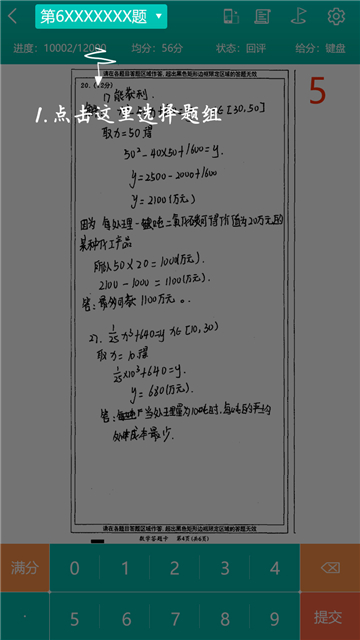 第6XXXXXXX题
进度：10002/12000 均分：56分 状态：回评 给分：键盘
请在各题目答题区域作答，超出黑色矩形边框限定区域的答案无效
20.（12分）
5
1.点击这里选择题组
(1) 能获利.
[30.50]
取x=50 得
50² -40×50+1600=y.
y=2500-2000+1600
y=2100(万元)
因为 每处理一吨二氧化碳可得价值为20万元的
某种化工产品
所以 50×20=1000(万元).
2100-1000=1100(万元).
1100万元。
2). 1/25 x³+640=y x∈[10,30)
取x=10.得
1/25×10³+640=y.
y=680(万元).
答:
处理成本最少.
请在各题目答题区域作答，超出黑色矩形边框限定区域的答案无效
数学答题卡 第4页(共6页)
满分 0 1 2 3 4
. 5 6 7 8 9 提交